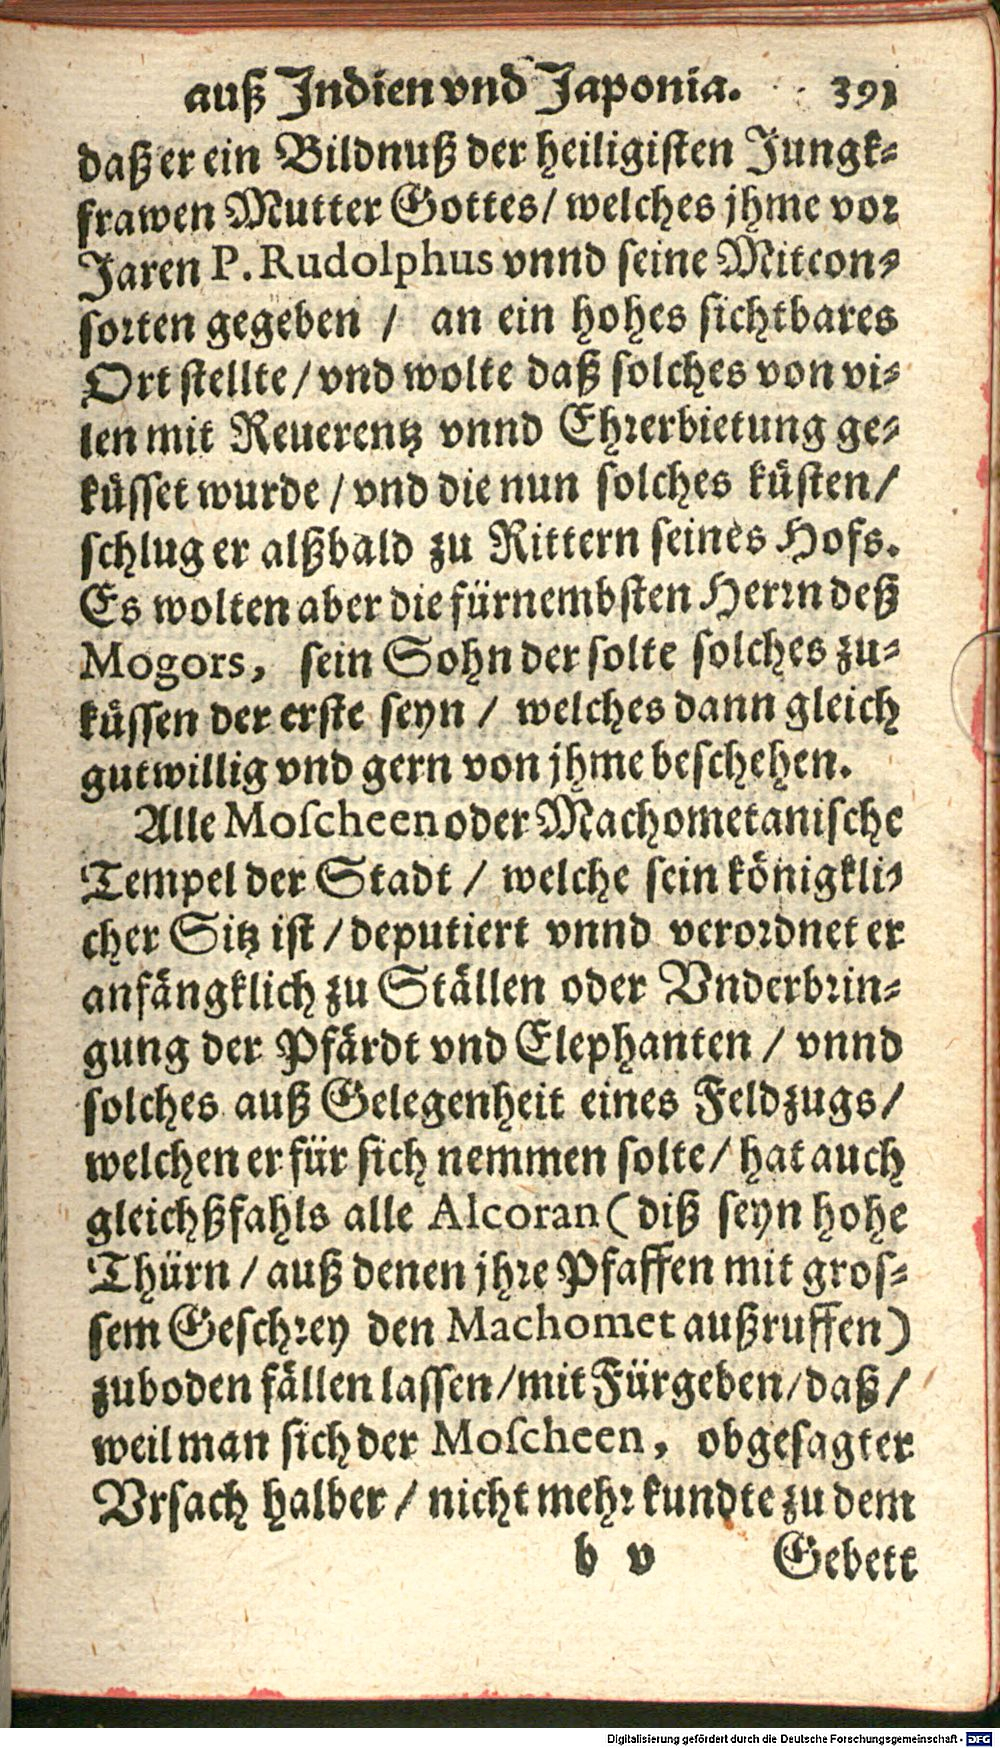 auß Indien vnd Japonia. 391
daß er ein Bildnuß der heiligisten Jungk-
frawen Mutter Gottes/ welches jhme vor
Jaren P. Rudolphus vnnd seine Mitcon-
sorten gegeben / an ein hohes sichtbares
Ort stellte/ vnd wolte daß solches von vi-
len mit Reuerentz vnnd Ehrerbietung ge-
küsset wurde / vnd die nun solches küsten/
schlug er alßbald zu Rittern seines Hofs.
Es wolten aber die fürnembsten Herrn deß
Mogors, sein Sohn der solte solches zu-
küssen der erste seyn / welches dann gleich
gutwillig vnd gern von jhme beschehen.
Alle Moscheen oder Machometanische
Tempel der Stadt / welche sein königkli-
cher Sitz ist / deputiert vnnd verordnet er
anfängklich zu Ställen oder Vnderbrin-
gung der Pfärdt vnd Elephanten / vnnd
solches auß Gelegenheit eines Feldzugs/
welchen er für sich nemmen solte/ hat auch
gleichßfahls alle Alcoran (diß seyn hohe
Thürn / auß denen jhre Pfaffen mit gros-
sem Geschrey den Machomet außruffen)
zuboden fällen lassen/mit Fürgeben/daß/
weil man sich der Moscheen, obgesagter
Vrsach halber / nicht mehr kundte zu dem
b v Gebett
Digitalisierung gefördert durch die Deutsche Forschungsgemeinschaft - DFG